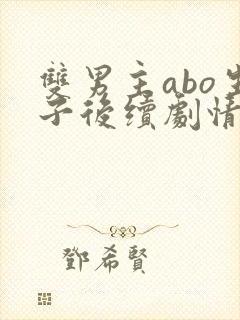 雙男主abo生
子後續劇情
鄧希賢